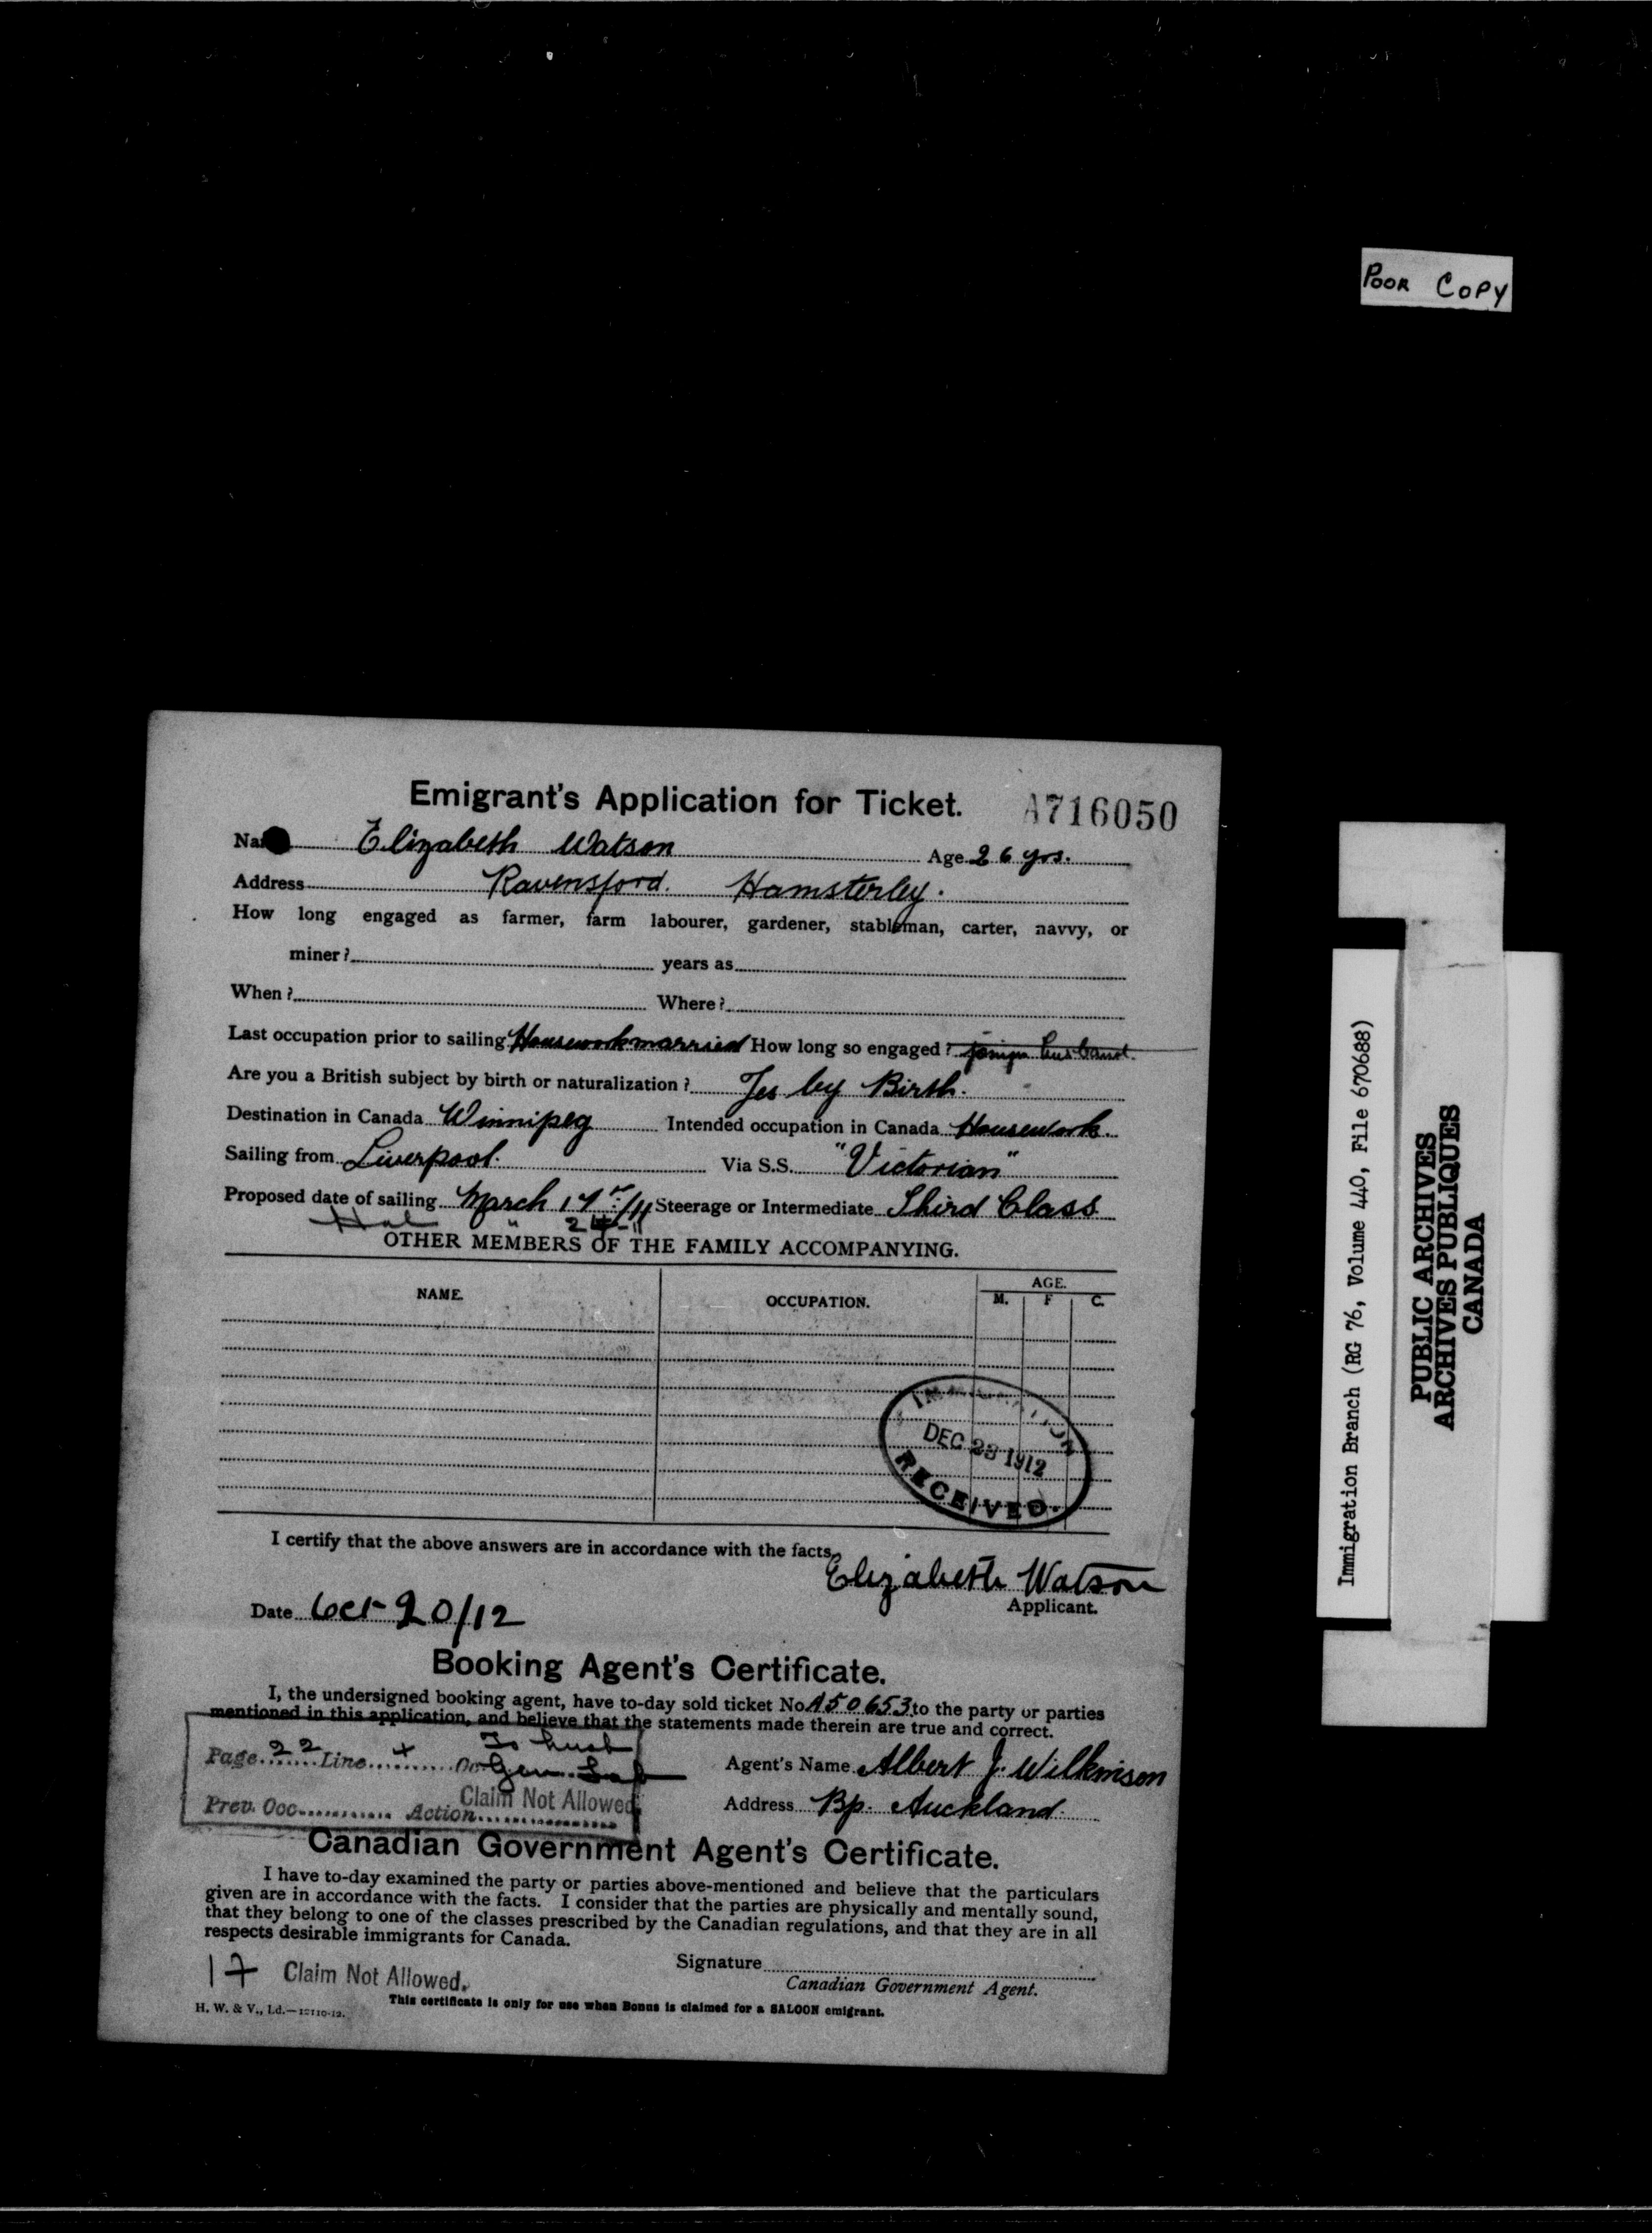 POOR COPY
Emigrant's Application for Ticket. A716050
Na Elizabeth Watson Age 26 yrs.
Address Ravensford. Hamsterley.
How long engaged as farmer, farm labourer, gardener, stableman, carter, navvy, or
miner? years as
When? Where?
Last occupation prior to sailing Housework married How long so engaged? husband.
Are you a British subject by birth or naturalization? Yes by Birth.
Destination in Canada Winnipeg Intended occupation in Canada Housework.
Sailing from Liverpool. Via S.S. "Victorian"
Proposed date of sailing March 17 /11 Steerage or Intermediate Third Class
Hal " 24-11
OTHER MEMBERS OF THE FAMILY ACCOMPANYING.
NAME. OCCUPATION. AGE.
M. F C.
IMMIGRATION
DEC 23 1912
RECEIVED.
I certify that the above answers are in accordance with the facts.
Elizabeth Watson
Applicant.
Date Oct 20/12
Booking Agent's Certificate.
I, the undersigned booking agent, have to-day sold ticket No A50653 to the party or parties
mentioned in this application, and believe that the statements made therein are true and correct.
To husb
Page 22 Line + Oc Gen. Lab
Agent's Name Albert J. Wilkinson
Claim Not Allowed
Prev. Occ. Action
Address Bp. Auckland.
Canadian Government Agent's Certificate.
I have to-day examined the party or parties above-mentioned and believe that the particulars
given are in accordance with the facts. I consider that the parties are physically and mentally sound,
that they belong to one of the classes prescribed by the Canadian regulations, and that they are in all
respects desirable immigrants for Canada.
Signature
Canadian Government Agent.
17 Claim Not Allowed.
This certificate is only for use when Bonus is claimed for a SALOON emigrant.
H. W. & V., Ld.
Immigration Branch (RG 76, Volume 440, File 670688)
PUBLIC ARCHIVES
ARCHIVES PUBLIQUES
CANADA